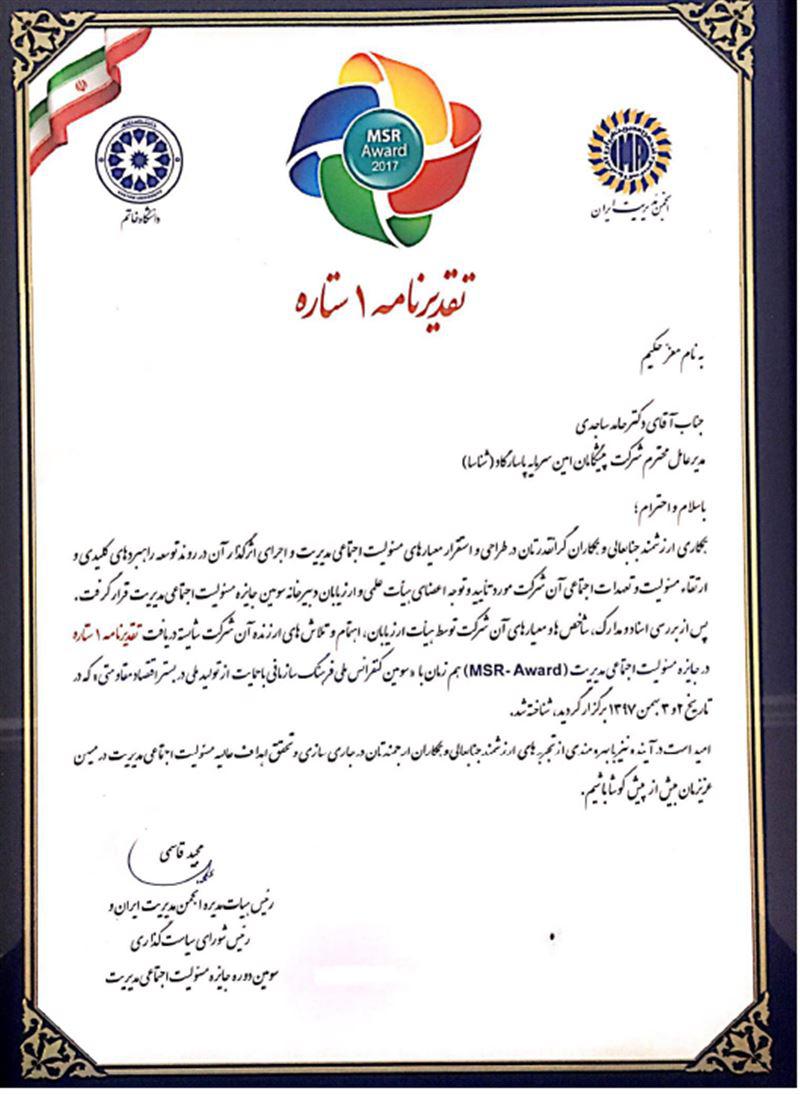 MSR
Award
2017
دانشگاه خاتم
انجمن مدیریت ایران
تقدیرنامه ۱ ستاره
به نام معزّ حکیم
جناب آقای دکتر حامد ساجدی
مدیرعامل محترم شرکت پیشگامان امین سرمایه پاسارگاد (شناسا)
باسلام و احترام؛
همکاری ارزشمند جنابعالی و همکاران گرانقدرتان در طراحی و استقرار معیارهای مسئولیت اجتماعی مدیریت و اجرای اثرگذار آن در روند توسعه راهبردهای کلیدی و
ارتقاء مسئولیت و تعهدات اجتماعی آن شرکت مورد تأیید و توجه اعضای هیأت علمی و ارزیابان دبیرخانه سومین جایزه مسئولیت اجتماعی مدیریت قرار گرفت.
پس از بررسی اسناد و مدارک، شاخص ها و معیارهای آن شرکت توسط هیأت ارزیابان، اهتمام و تلاش های ارزنده آن شرکت شایسته دریافت تقدیرنامه ۱ ستاره
در جایزه مسئولیت اجتماعی مدیریت (MSR- Award) هم زمان با «سومین کنفرانس ملی فرهنگ سازمانی با حمایت از تولید ملی در بستر اقتصاد مقاومتی» که در
تاریخ ۲ و ۳ بهمن ۱۳۹۷ برگزار گردید، شناخته شد.
امید است در آینده نیز با بهره مندی از تجربه های ارزشمند جنابعالی و همکاران ارجمندتان در جاری سازی و تحقق اهداف عالیه مسئولیت اجتماعی مدیریت در میهن
عزیزمان بیش از پیش کوشا باشیم.
مجید قاسمی
رئیس هیات مدیره انجمن مدیریت ایران و
رئیس شورای سیاست گذاری
سومین دوره جایزه مسئولیت اجتماعی مدیریت